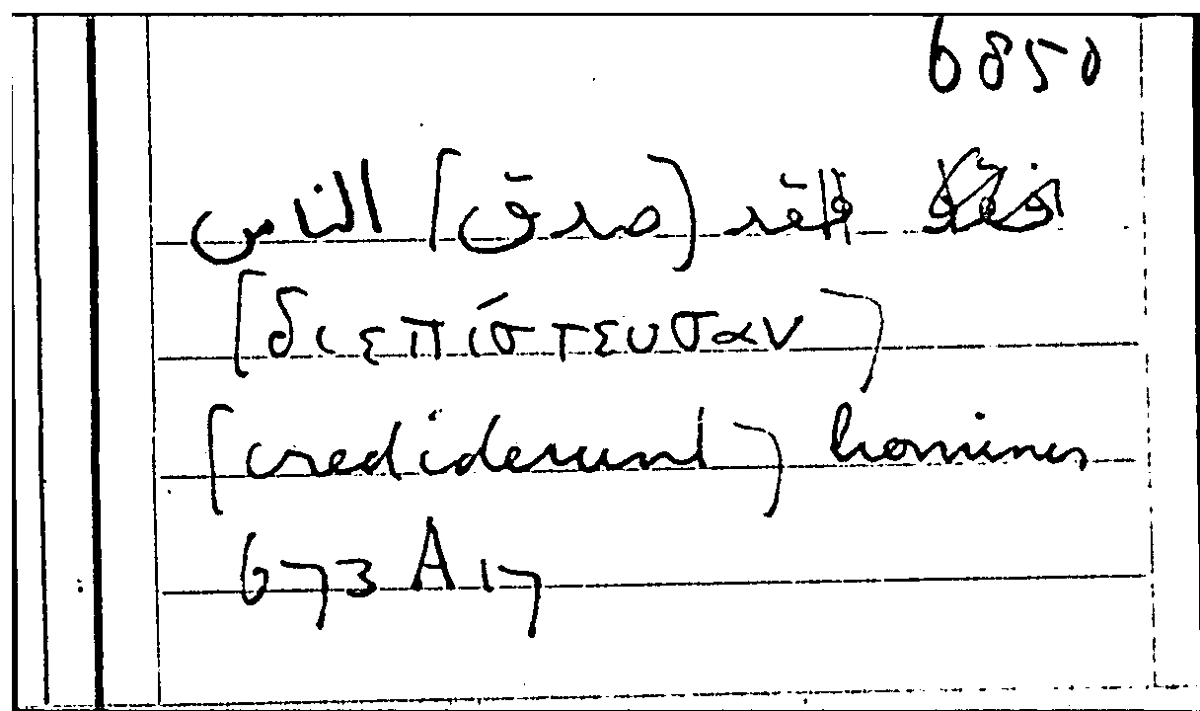 6850
فقد [صدق] الناس
[διεπίστευσαν]
[crediderunt] homines
673 A 17